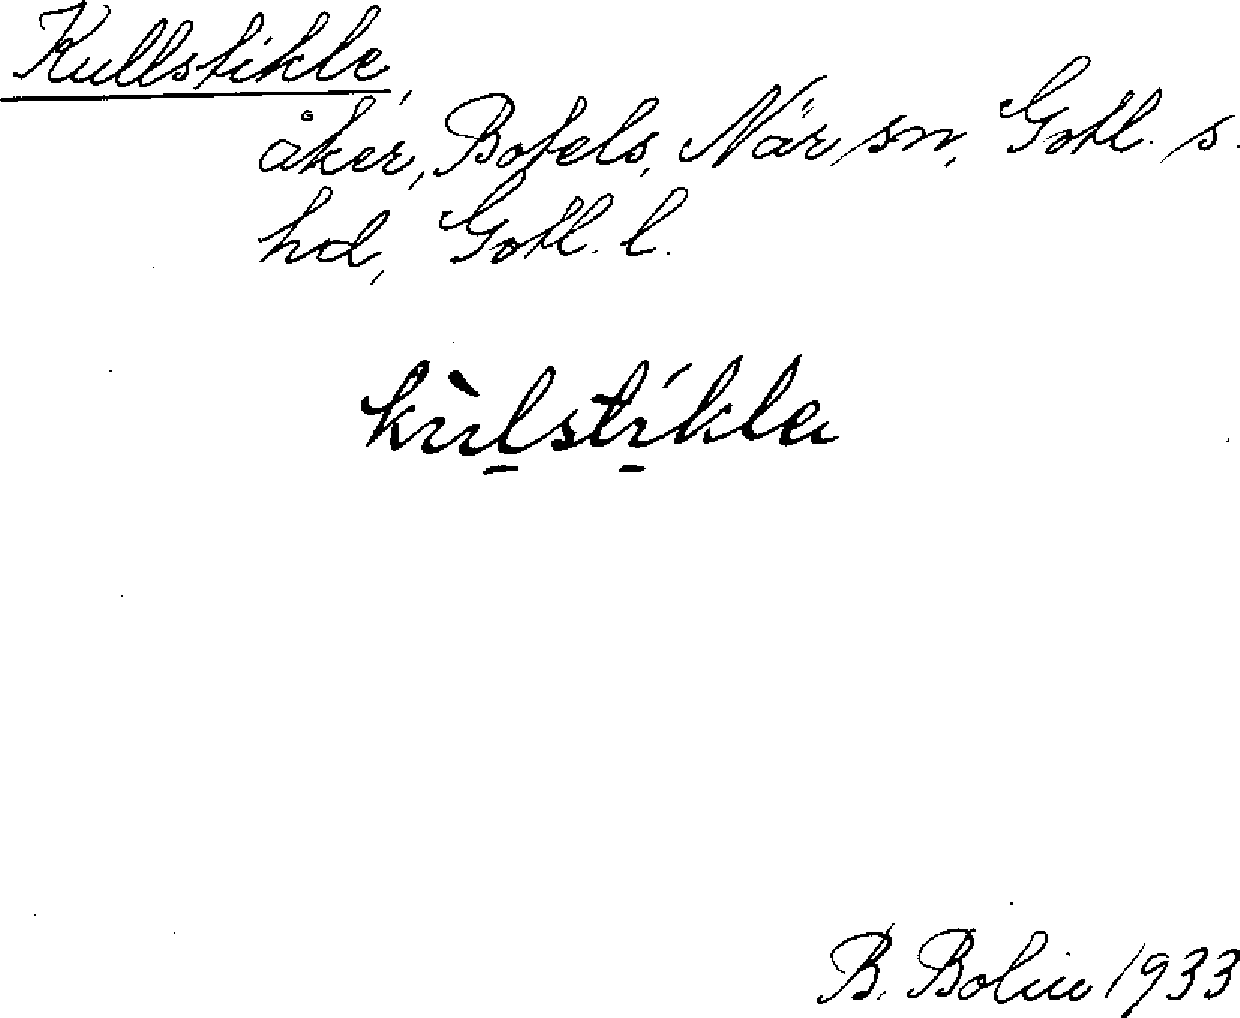 Kullstikle,
åker, Botels, När sn, Gotl. s.
hd, Gotl. l.
kùlstíkla
B. Bolin 1933